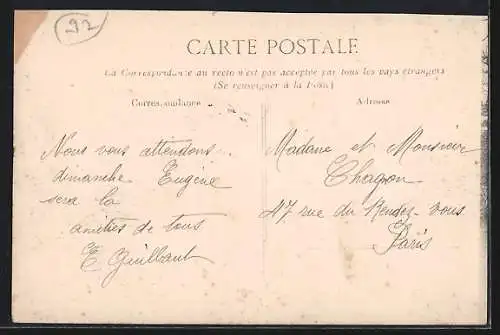 92
CARTE POSTALE
La Correspondance au recto n'est pas acceptée par tous les pays étrangers
(Se renseigner à la Poste)
Correspondance
Nous vous attendons
dimanche Eugène
sera là
amitiés de tous
E. Guillaut
Adresse
Madame et Monsieur
Chagon
47 rue du Rendez-vous
Paris